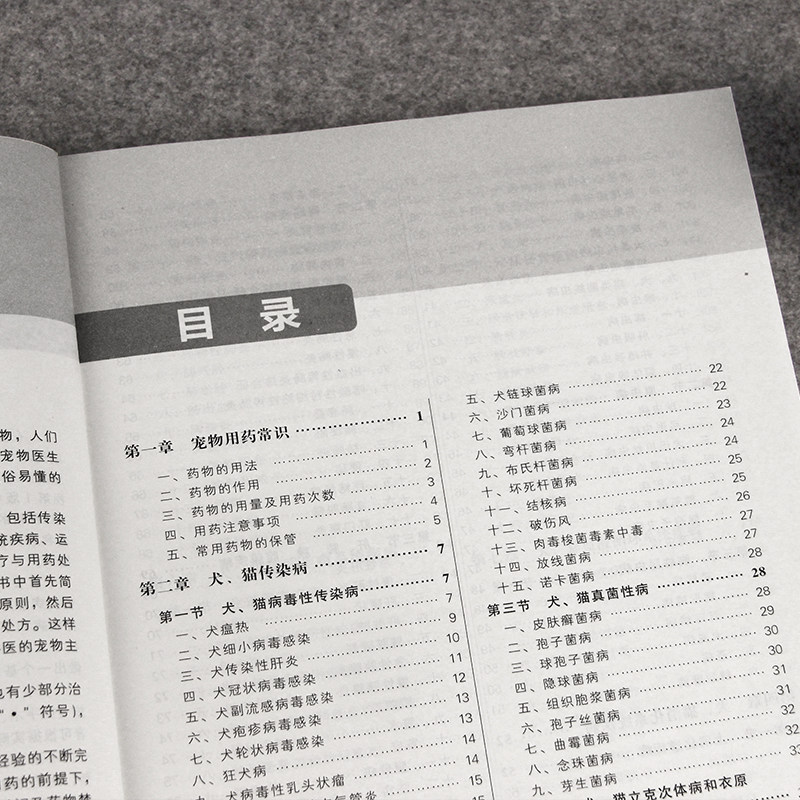 物，人们
宠物医生
俗易懂的
包括传染
统疾病、运
疗与用药处
书中首先简
原则，然后
处方。这样
医的宠物主
也有少部分治
“•”符号)，
经验的不断完
药的前提下，
目录
第一章 宠物用药常识 1
一、药物的用法 1
二、药物的作用 2
三、药物的用量及用药次数 3
四、用药注意事项 4
五、常用药物的保管 5
第二章 犬、猫传染病 7
第一节 犬、猫病毒性传染病 7
一、犬瘟热 7
二、犬细小病毒感染 9
三、犬传染性肝炎 10
四、犬冠状病毒感染 11
五、犬副流感病毒感染 12
六、犬疱疹病毒感染 13
七、犬轮状病毒感染 13
八、狂犬病 14
九、犬病毒性乳头状瘤 14
气管炎 15
五、犬链球菌病 22
六、沙门菌病 22
七、葡萄球菌病 23
八、弯杆菌病 24
九、布氏杆菌病 24
十、坏死杆菌病 25
十一、结核病 25
十二、破伤风 26
十三、肉毒梭菌毒素中毒 27
十四、放线菌病 27
十五、诺卡菌病 28
第三节 犬、猫真菌性病 28
一、皮肤癣菌病 28
二、孢子菌病 29
三、球孢子菌病 30
四、隐球菌病 30
五、组织胞浆菌病 31
六、孢子丝菌病 31
七、曲霉菌病 32
八、念珠菌病 32
九、芽生菌病 33
猫立克次体病和衣原